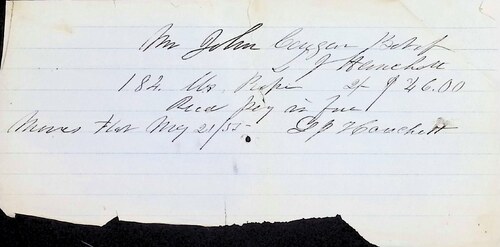 Mr John Cougar Bot of
L J Hanchett
182 lbs. Rope 2/ $46.00
Recd pay in full
Moores Flat May 23/55 L J Hanchett